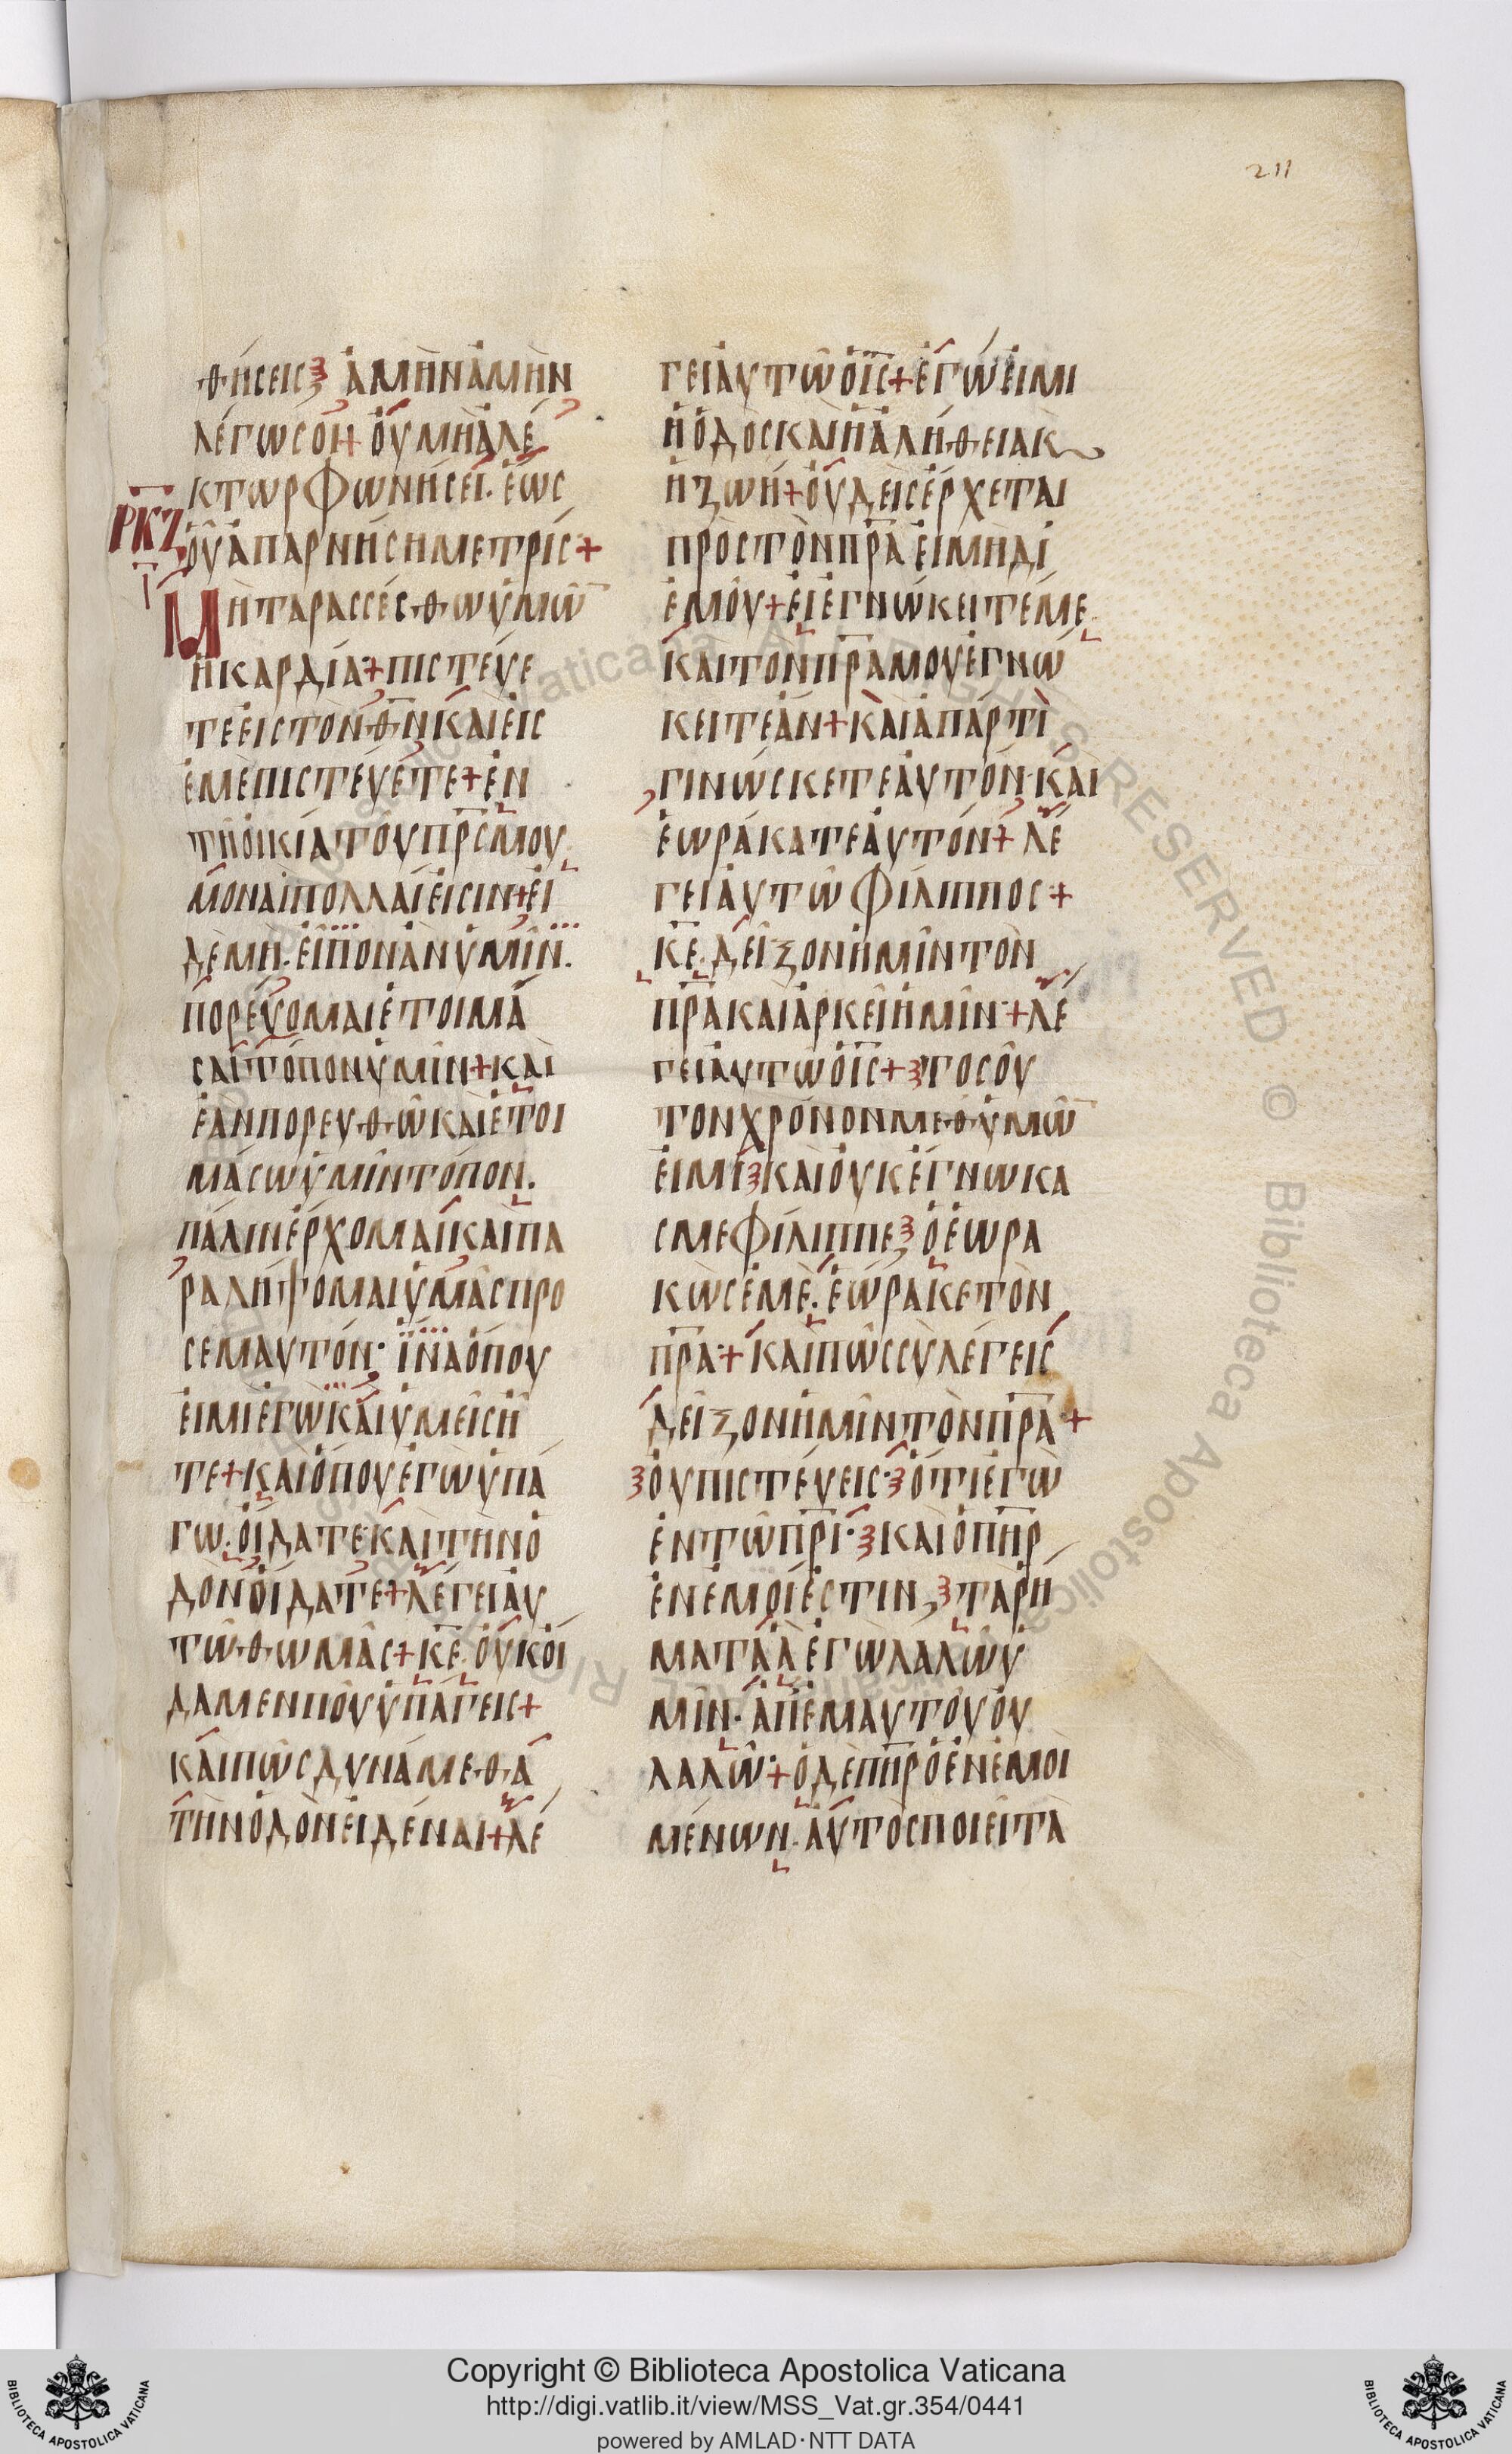 211
θήσεις ἀμὴν ἀμὴν
λέγω σοι + οὐ μὴ ἀλέ
κτωρ φωνήσει. ἕως
ΡΚΖ
οὗ ἀπαρνήσῃ με τρίς +
Γ
Μὴ ταρασσέσθω ὑμῶ̅
ἡ καρδία + πιστεύε
τε εἰς τὸν θ̅ν̅ καὶ εἰς
ἐμὲ πιστεύετε + ἐν
τῇ οἰκία τοῦ π̅ρ̅ς̅ μου
μοναὶ πολλαί εἰσιν + εἰ
δὲ μή. εἶπον ἂν ὑμῖν.
πορεύομαι ἑτοιμά
σαι τόπον ὑμῖν + καὶ
ἐὰν πορευθῶ καὶ ἑτοι
μάσω ὑμῖν τόπον.
πάλιν ἔρχομαι καὶ πα
ραλήψομαι ὑμᾶς προ
σ ἐμαυτόν· ἵνα ὅπου
εἰμὶ ἐγὼ καὶ ὑμεῖς ἦ
τε + καὶ ὅπου ἐγὼ ὑπά
γω. οἴδατε καὶ τὴν ὁ
δὸν οἴδατε + λέγει αὐ
τῶ θωμᾶς + κ̅ε̅. οὐκ οἴ
δαμεν ποῦ ὑπάγεις +
καὶ πῶς δυνάμεθα
τὴν ὁδὸν εἰδέναι + λέ
γει αὐτῶ ὁ ι̅ς̅ + ἐγώ εἰμι
ἡ ὁδὸς καὶ ἡ ἀλήθεια κ
ἡ ζωή + οὐδεὶς ἔρχεται
πρὸς τὸν π̅ρ̅α̅ εἰ μὴ δι
ἐμοῦ + εἰ ἐγνώκειτέ με.
καὶ τὸν π̅ρ̅α̅ μου ἐγνώ
κειτε ἄν + καὶ ἀπάρτι
γινώσκετε αὐτόν· καὶ
ἑωράκατε αὐτόν + λέ
γει αὐτῶ φίλιππος +
κ̅ε̅. δεῖξον ἡμῖν τὸν
π̅ρ̅α̅ καὶ ἀρκεῖ ἡμῖν + λέ
γει αὐτῶ ὁ ι̅ς̅ + τοσοῦ
τον χρόνον μεθ ὑμῶ̅
εἰμὶ καὶ οὐκ ἔγνωκα
ς με φίλιππε ὁ ἑωρα
κὼς ἐμὲ. ἑώρακε τὸν
π̅ρ̅α̅ + καὶ πῶς σὺ λέγεις
δεῖξον ἡμῖν τὸν π̅ρ̅α̅ +
οὐ πιστεύεις· ὅτι ἐγὼ
ἐν τῶ π̅ρ̅ι̅· καὶ ὁ π̅η̅ρ̅
ἐν ἐμοί ἐστιν, τὰ ῥή
ματα ἃ ἐγὼ λαλῶ ὑ
μῖν· ἀπ ἐμαυτοῦ οὐ
λαλῶ· + ὁ δὲ π̅η̅ρ̅ ὁ ἐν ἐμοὶ
μένων. αὐτὸς ποιεῖ τὰ
Copyright © Biblioteca Apostolica Vaticana
http://digi.vatlib.it/view/MSS_Vat.gr.354/0441
powered by AMLAD·NTT DATA